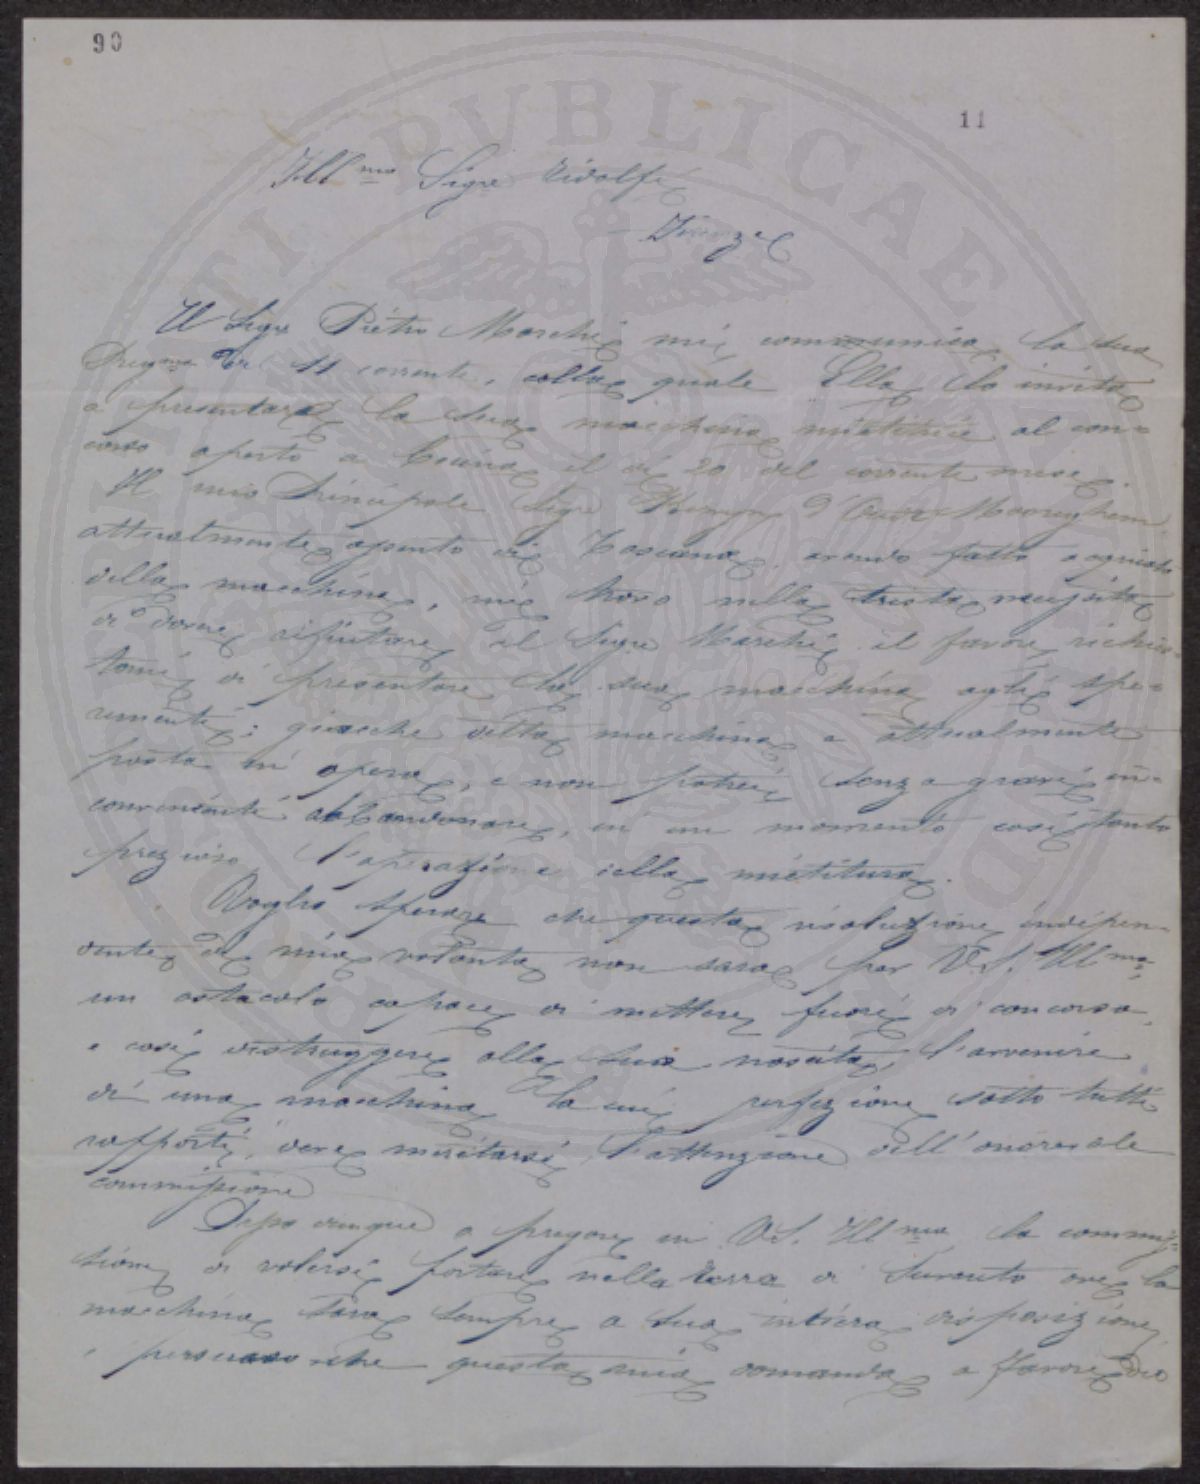 90
11
Ill.mo Sigre Ridolfi
Firenze
Il Sigre Pietro Marchi mi communica la sua
Preg.ma del 11 corrente, colla quale Ella lo invita
a presentare la sua macchina mietitrice al con-
corso aperto a Cecina il dì 20 del corrente mese.
Il mio Principale Sigre
attualmente assente di Toscana, avendo fatto acquisto
della macchina, mi trovo nella trista necessità
di dover rifiutare al Sigre Marchi il favore richies-
tomi di presentare la sua macchina agli spe-
rimenti; giacchè detta macchina è attualmente
posta in opera, e non potrei senza gravi in-
convenienti abbandonare, in un momento così tanto
prezioso l'operazione della mietitura.
Voglio sperare che questa risoluzione indipen-
dente di mia volontà non sarà per V.S. Ill.ma
un ostacolo capace di mettere fuori di concorso,
e così distruggere alla sua nascita, l'avvenire
di una macchina la cui perfezione sotto tutti
rapporti, deve meritarsi l'attenzione dell'onorevole
commissione
dunque a pregare V.S. Ill.ma la commis-
sione di volersi portare nella terra di ove la
macchina sarà sempre a sua intiera disposizione,
persuaso che questa mia domanda a favore di
SENATI PVBLICAE